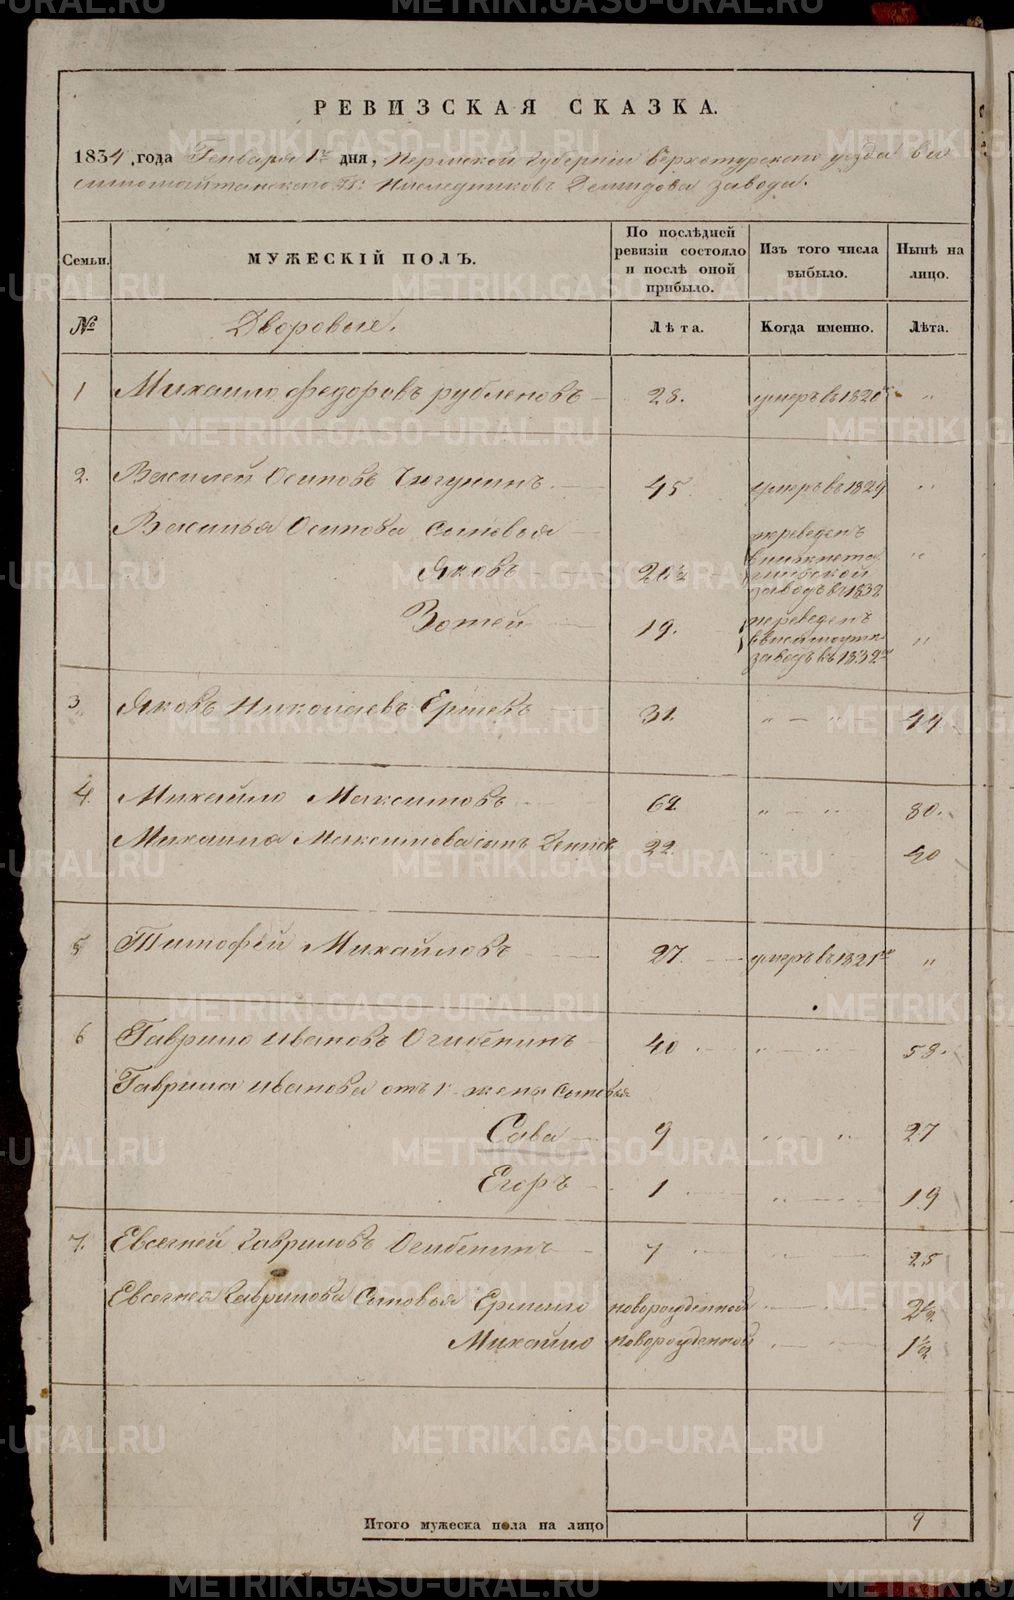 РЕВИЗСКАЯ СКАЗКА.
1834, года Генваря 1го дня, Пермской Губернии Верхотурского уезда Ви
симошайтанского Гг: Наследниковъ Демидова завода.
Семьи. МУЖЕСКІЙ ПОЛЪ. По послѣдней ревизіи состояло и послѣ оной прибыло. Изъ того числа выбыло. Нынѣ на лицо.
№ Дворовые. Лѣта. Когда именно. Лѣта.
1 Михаило Федоровъ 28. умеръ въ 1820м „
2. Василей Осиповъ 45 умеръ въ 1829 „
Василья Осипова сыновья
Яковъ 20½ переведенъ в нижнета гильской заводъ въ 1832 „
Вотей 19. переведенъ заводъ въ 1832м „
3. Яковъ Николаевъ 31. „ — „ 44
4. Михайло Максимовъ 62. „ — „ 80.
Михаила Максимова сынъ Денисъ 22. 40
5 Тимофей Михайловъ 27. умеръ въ 1821м „
6 Гаврило Ивановъ Огибенинъ 40 „ — „ 58.
Гаврила Иванова отъ 1й жены сыновья
Сава 9 „ — „ 27
Егоръ 1 „ — „ 19
7. Евсегней Гавриловъ Огибенинъ 7 25
Евсегнея Гаврилова Сыновья Ермило новорожденной 2½
Михайло новорожденной 1½
Итого мужеска пола на лицо 9
METRIKI.GASO-URAL.RU